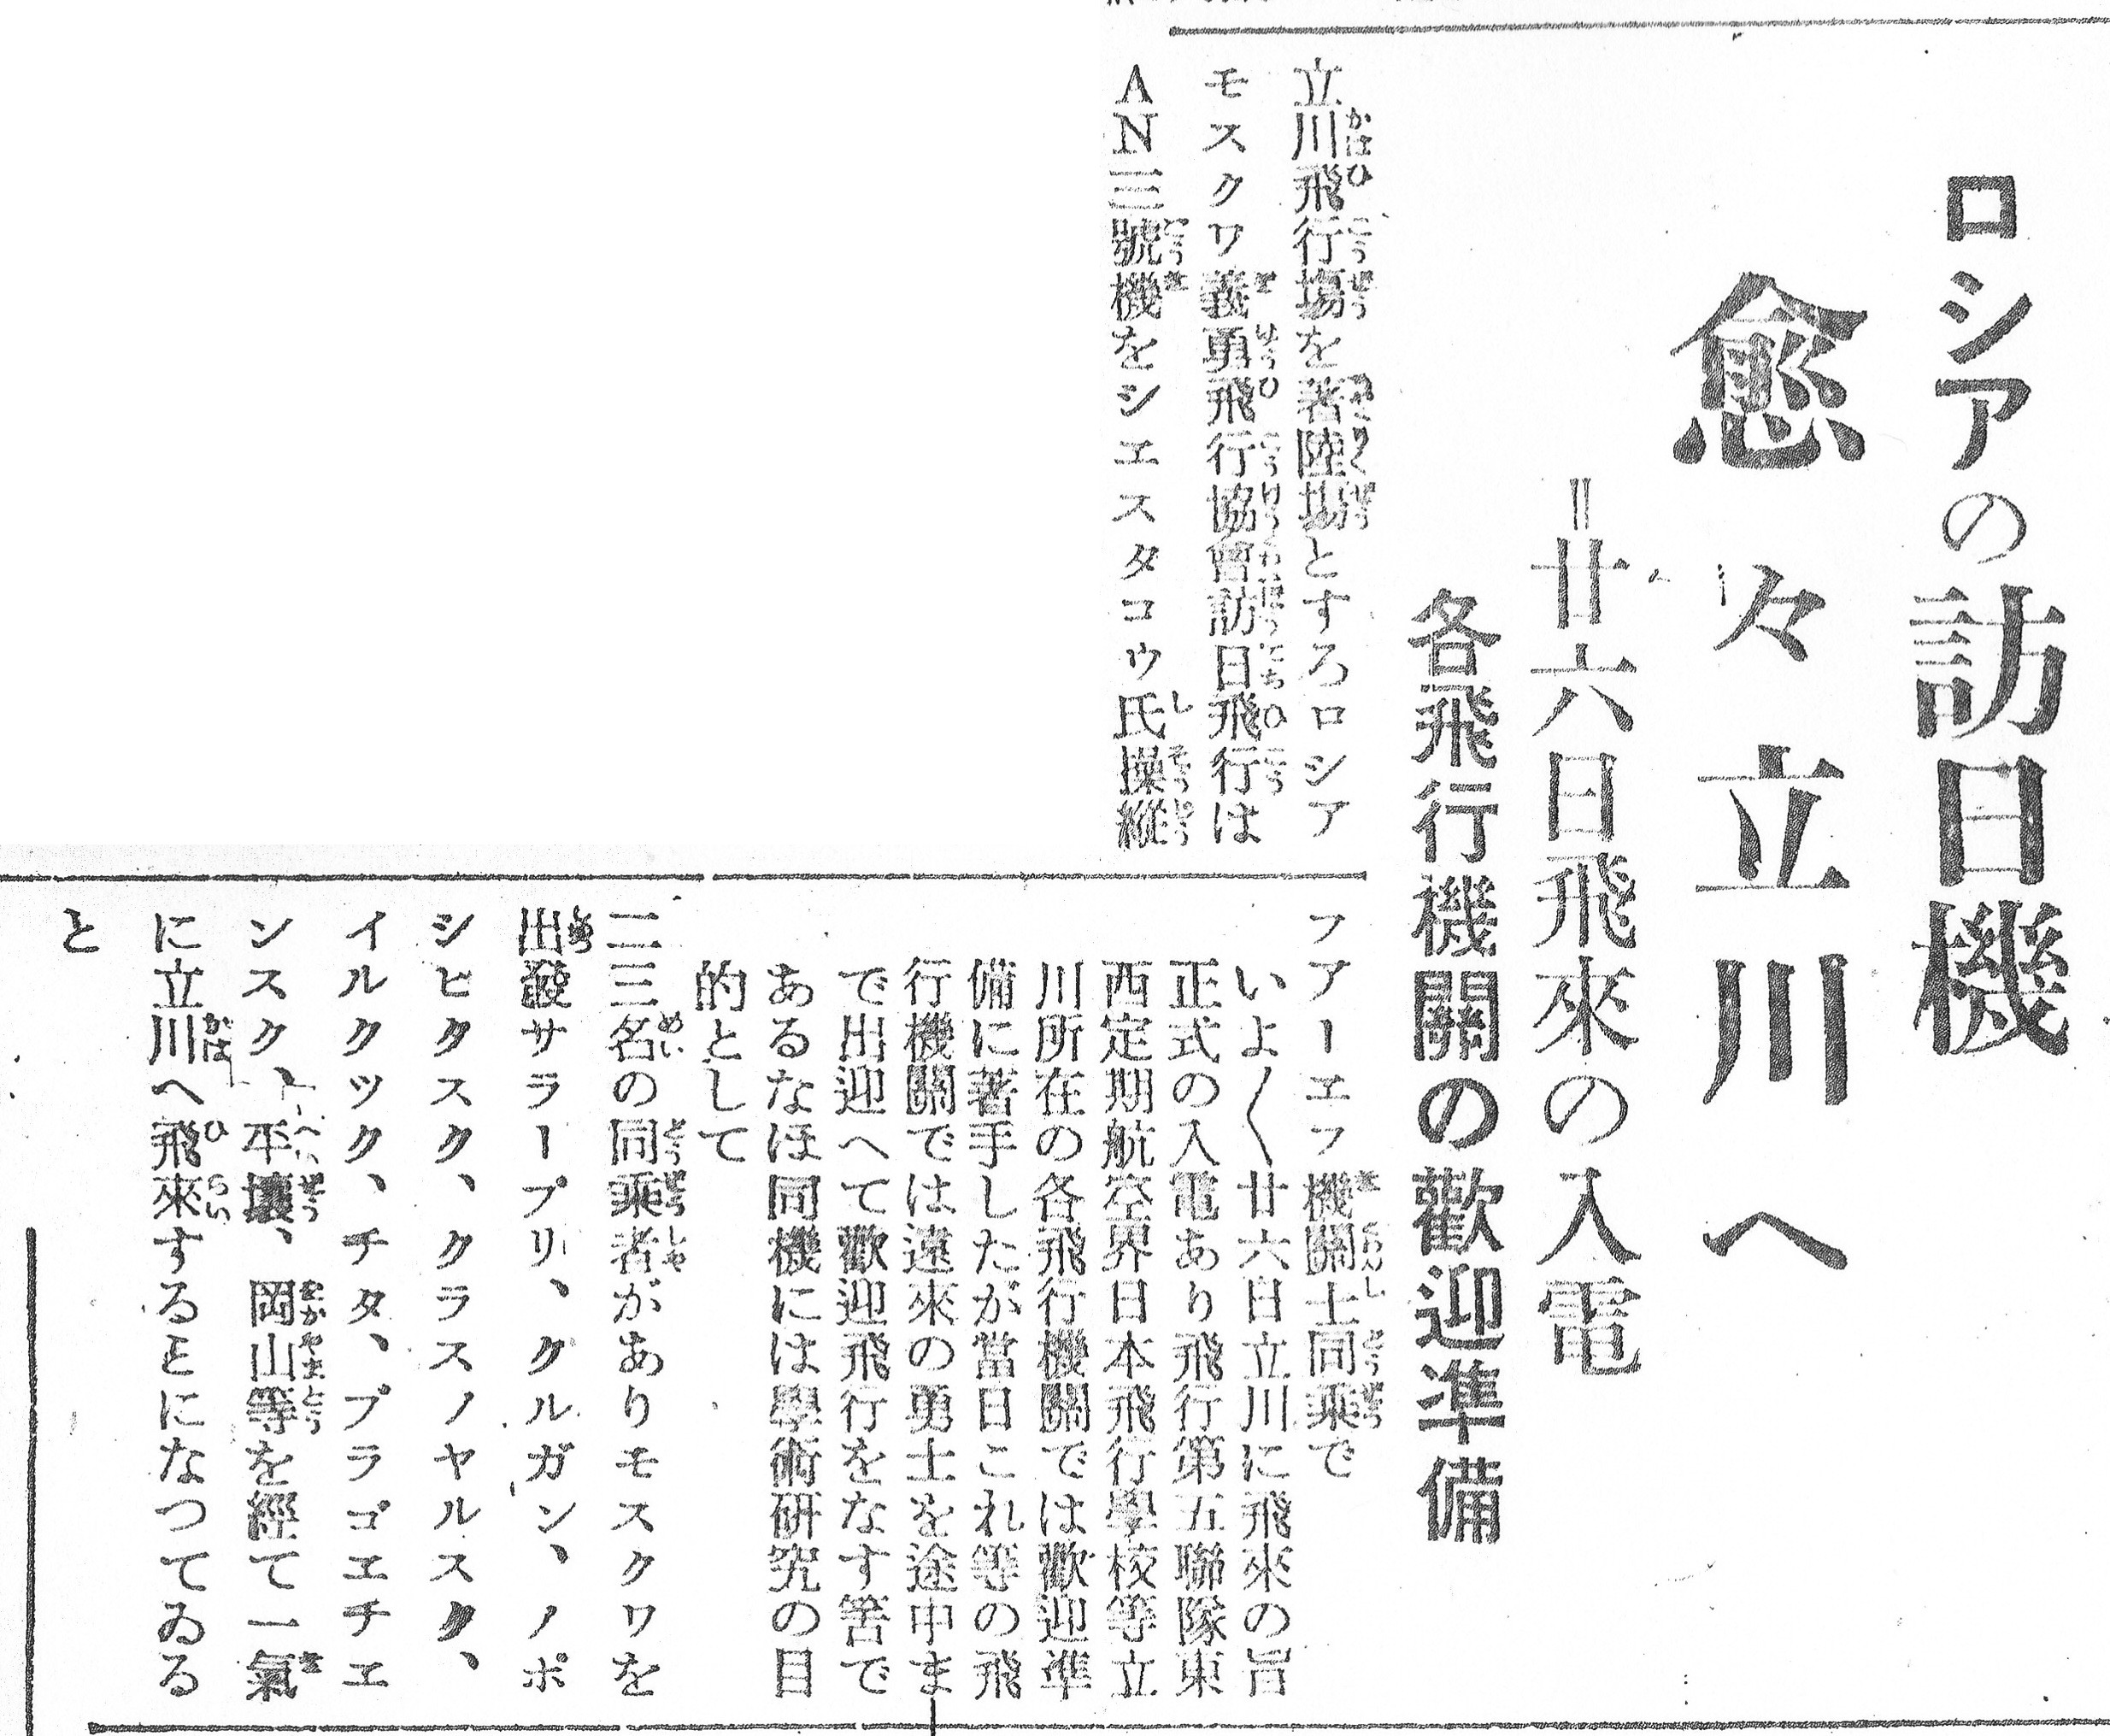 ロシアの訪日機
愈々立川へ
＝廿六日飛來の入電
各飛行機關の歡迎準備
立川飛行場を著陸場とするロシア
モスクワ義勇飛行協會訪日飛行は
AN三號機をシエスタコウ氏操縱
フアーエフ機關士同乘で
いよ〱廿六日立川に飛來の旨
正式の入電あり飛行第五聯隊東
西定期航空界日本飛行學校等立
川所在の各飛行機關では歡迎準
備に著手したが當日これ等の飛
行機關では遠來の勇士を途中ま
で出迎へて歡迎飛行をなす筈で
あるなほ同機には學術研究の目
的として
二三名の同乘者がありモスクワを
出發サラープリ、クルガン、ノボ
シビタスク、クラスノヤルスク、
イルクツク、チタ、ブラゴエチエ
ンスク、平壤、岡山等を經て一氣
に立川へ飛來するとになつてゐる
と